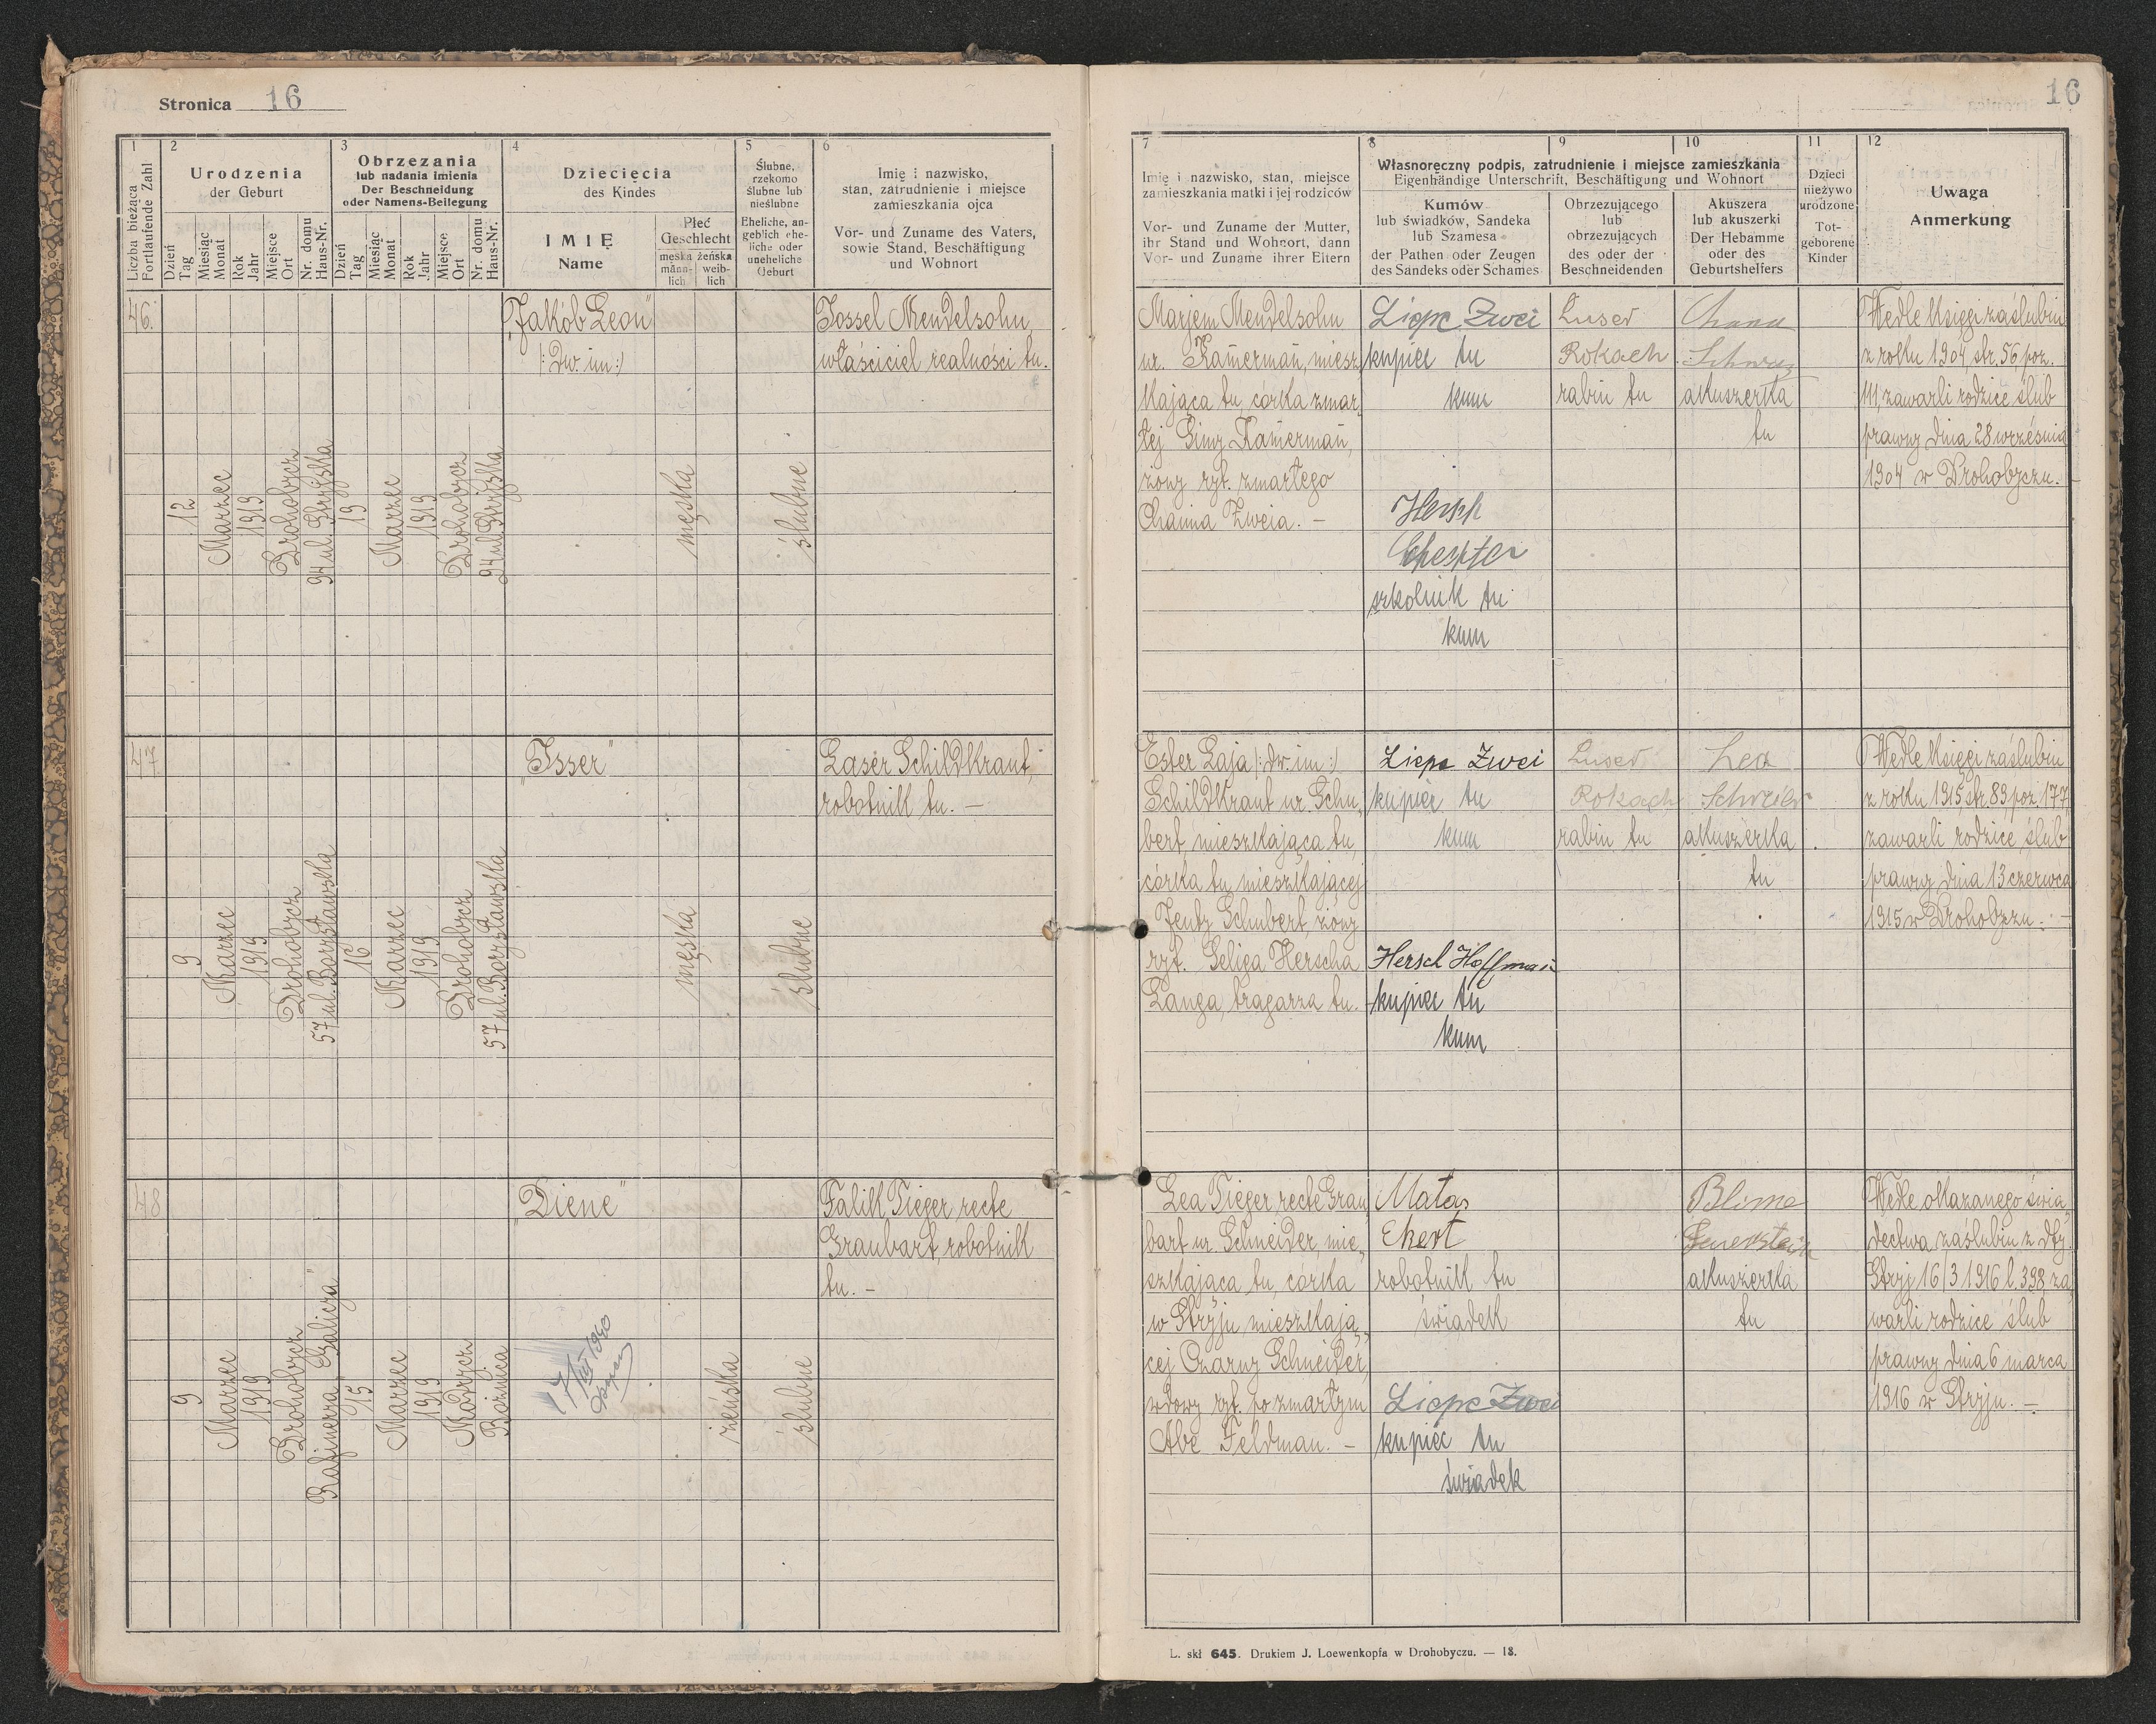 Stronica 16
16
1
2
3
4
5
6
Liczba bieżąca
Fortlaufende Zahl
Urodzenia
der Geburt
Dzień
Tag
Miesiąc
Monat
Rok
Jahr
Miejsce
Ort
Nr. domu
Haus-Nr.
Obrzezania
lub nadania imienia
Der Beschneidung
oder Namens-Beilegung
Dzień
Tag
Miesiąc
Monat
Rok
Jahr
Miejsce
Ort
Nr. domu
Haus-Nr.
Dziecięcia
des Kindes
IMIĘ
Name
Płeć
Geschlecht
męska
männ-
lich
żeńska
weib-
lich
Ślubne,
rzekomo
ślubne lub
nieślubne
Eheliche, an-
geblich ehe-
liche oder
uneheliche
Geburt
Imię i nazwisko,
stan, zatrudnienie i miejsce
zamieszkania ojca
Vor- und Zuname des Vaters,
sowie Stand, Beschäftigung
und Wohnort
7
8
9
10
11
12
Imię i nazwisko, stan, miejsce
zamieszkania matki i jej rodziców
Vor- und Zuname der Mutter,
ihr Stand und Wohnort, dann
Vor- und Zuname ihrer Eltern
Własnoręczny podpis, zatrudnienie i miejsce zamieszkania
Eigenhändige Unterschrift, Beschäftigung und Wohnort
Kumów
lub świadków, Sandeka
lub Szamesa
der Pathen oder Zeugen
des Sandeks oder Schames
Obrzezującego
lub
obrzezujących
des oder der
Beschneidenden
Akuszera
lub akuszerki
Der Hebamme
oder des
Geburtshelfers
Dzieci
nieżywo
urodzone
Tot-
geborene
Kinder
Uwaga
Anmerkung
46.
12
Marzec
1919
Drohobycz
94 ul. Stryjska
19
Marzec
1919
Drohobycz
94 ul. Stryjska
„Jakób Leon"
/: Dw. im :/
męska
ślubne
Jossel Mendelsohn,
właściciel realności tu.
Marjem Mendelsohn
ur. Kamerman, miesz„
kająca tu, córka zmar„
łej Gimy Kamerman,
żony ryt. zmarłego
Chaima Zweia. –
Liepe Zwei
kupiec tu
kum
Hersh
szkolnik tu
kum
Luser
Rokach
rabin tu
Chana
akuszerka
tu
Wedle Księgi zaślubin
z roku 1904, str. 56 poz.
111, zawarli rodzice ślub
prawny dnia 28 września
1904 w Drohobyczu. –
47
9
Marzec
1919
Drohobycz
57 ul. Borysławska
16
Marzec
1919
Drohobycz
57 ul. Borysławska
„Isser"
męska
ślubne
Laser Schildkraut,
robotnik tu. –
Ester Laja /: dw. im :/
Schildkraut ur. Schu„
bert mieszkająca tu,
córka tu mieszkającej
Jenty Schubert, żony
ryt. Seliga Herscha
Langa, tragarza tu.
Liepe Zwei
kupiec tu
kum
Hersch Hoffman
kupiec tu
kum
Luser
Rokach
rabin tu
Lea
akuszerka
tu
Wedle Księgi zaślubin
z roku 1915, str. 89, poz. 177
zawarli rodzice ślub
prawny dnia 13 czerwca
1915 w Drohobyczu. –
48
9
Marzec
1919
Drohobycz
Rafinerya „Galicya"
15
Marzec
1919
Modrycz
Bożnica
„Diene"
17/III 1940
żeńska
ślubne
Falik Tieger recte
Graubart, robotnik
tu. –
Lea Tieger recte Grau„
bart ur. Schneider, mie„
szkająca tu, córka
w Stryju mieszkają„
cej Czarny Schneider,
wdowy ryt. po zmarłym
Abe Feldman. –
Matas
Ekert
robotnik tu
świadek
Liepe Zwei
kupiec tu
świadek
Blime
Feuerstein
akuszerka
tu
Wedle okazanego świa„
dectwa zaślubin z dty.
Stryj 16/3 1916 l. 398 za„
warli rodzice ślub
prawny dnia 6 marca
1916 w Stryju. –
L. skł 645. Drukiem J. Loewenkopfa w Drohobyczu. — 18.